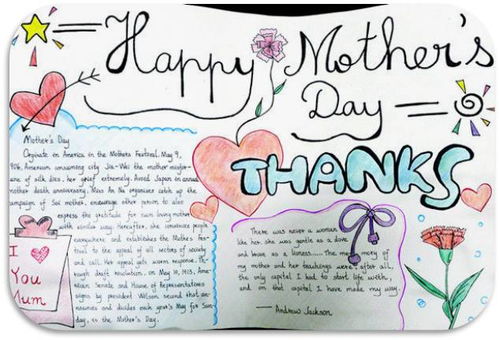 Happy Mother's
Day
THANKS
Mother's Day
Orginate in America in the Mothers Festival. May 9,
906, American
of silk dies, her grief extremely.
mother death anniversary, Miss An Na organizes catch up the
campaign of Sai mother, encourage other person to also
express the gratitude for sum loving mother
with similar way. Hereafter, she canvasses people
everywhere and establishes the Mother's Fes-
tival to the appeal of all sectors of society
and call. Her appeal gets warm response.
draft resolution, on May 10, 1913, Ame-
rican Senate and House of Representatives
signs by president Wilson
nounces and divides each year's May for Sun-
day, is the Mother's Day.
I
You
Mum
There was never a woman
like her. she was gentle as a dove
and brave as a lioness...... The memory of
my mother and her teachings were, after all,
the only capital I had to start life with,
and on that capital I have made my way.
— Andrew Jackson